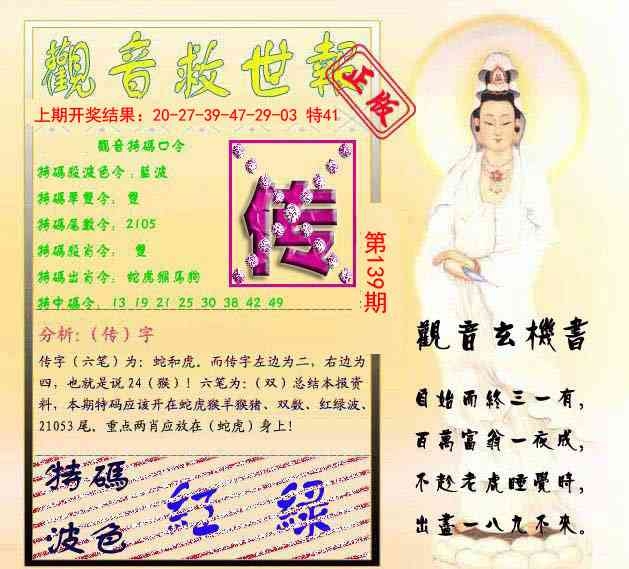 觀音救世報
正版
上期开奖结果: 20-27-39-47-29-03 特41
觀音特碼口令
特碼股波色令:藍波
特碼單雙令: 雙
特碼尾數令: 2105
特碼股肖令: 雙
特碼出肖令: 蛇虎猴馬狗
特中碼令: 13 19 21 25 30 38 42 49
传
第139期
分析:(传)字
传字(六笔)为:蛇和虎。而传字左边为二,右边为
四,也就是说24(猴)!六笔为:(双)总结本报资
料,本期特码应该开在蛇虎猴羊猴猪、双数、红绿波、
21053尾,重点两肖应放在(蛇虎)身上!
特碼
波色
紅 綠
觀音玄機書
自始而終三一有,
百萬富翁一夜成,
不趁老虎睡覺時,
出盡一八九不來。